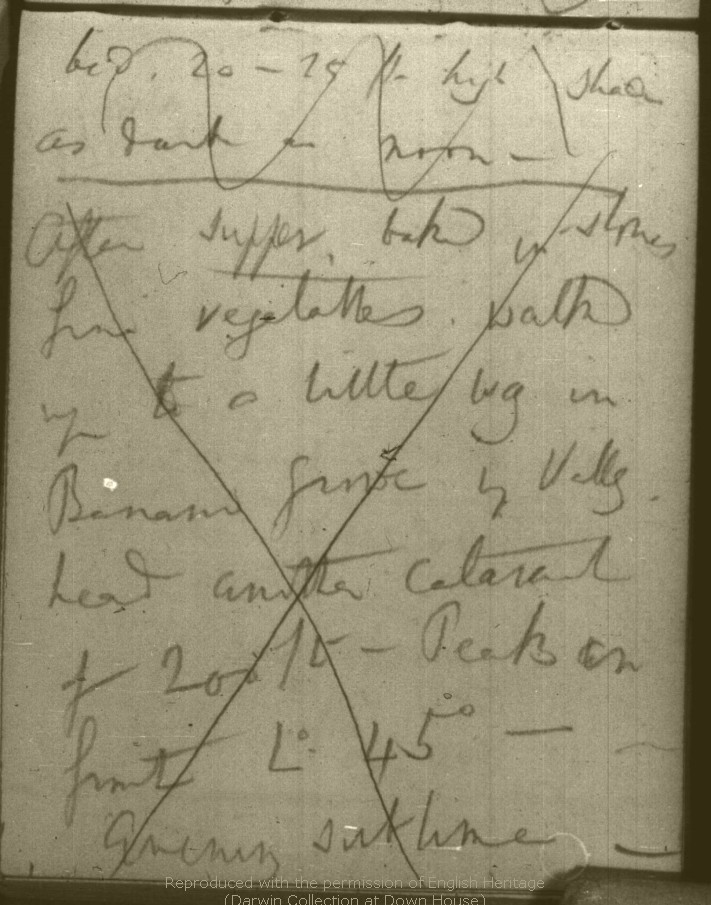 bed, 20 — 25 ft high shade
as dark as noon —
After supper, baked in stones
fine vegetables. walk
up to a little wig in
Banana grove by Valley
head another cataract
of 200 ft — Peaks in
front L° 45° —
sublime —
Reproduced with the permission of English Heritage
(Darwin Collection at Down House)